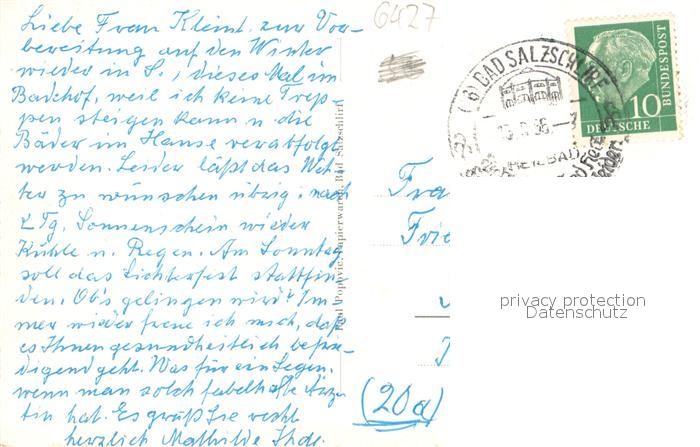 Liebe Frau Kleint, zur Vor-
bereitung auf den Winter
wieder in S., dieses Mal im
Badehof, weil ich keine Trep-
pen steigen kann u die
Bäder im Hause verabfolgt
werden. Leider läßt das Wet-
ter zu wünschen übrig, nach
2 Tg. Sonnenschein wieder
Kühle u. Regen. Am Sonntag
soll das Lichterfest stattfin-
den. Ob's gelingen wird? Im-
mer wieder freue ich mich, daß
es Ihnen gesundheitlich befrie-
digend geht. Was für ein Segen,
wenn man solch fabelhafte Ärz-
tin hat. Es grüßt Sie recht
herzlich Mathilde
Popovic, Papierwaren, Bad Salzschlirf
6427
(16) BAD SALZSCHLIRF
HEILBAD
10
DEUTSCHE
BUNDESPOST
Fra
Frie
(20a)
privacy protection
Datenschutz